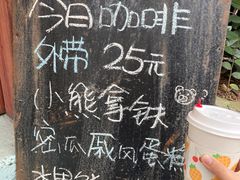 今日咖啡
外带 25元
小熊拿铁
密瓜戚风蛋糕